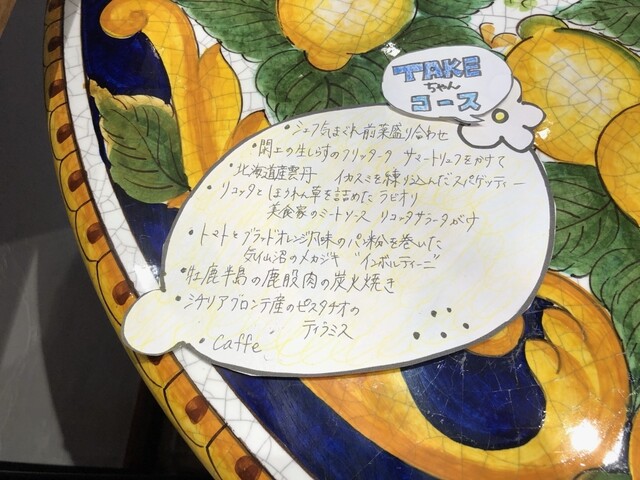 TAKE
ちゃん
コース
・シェフ気まぐれ前菜盛り合わせ
・閖上の生しらすのフリッターク サマートリュフをかけて
・北海道産雲丹 イカスミを練り込んだスパゲッティー
・リコッタとほうれん草を詰めたラビオリ
美食家のミートソース リコッタサラータがけ
・トマトとブラッドオレンジ風味のパン粉を巻いた
気仙沼のメカジキ〝インボルティーニ〟
・牡鹿半島の鹿股肉の炭火焼き
・シチリアブロンテ産のピスタチオの
ティラミス
・Caffe